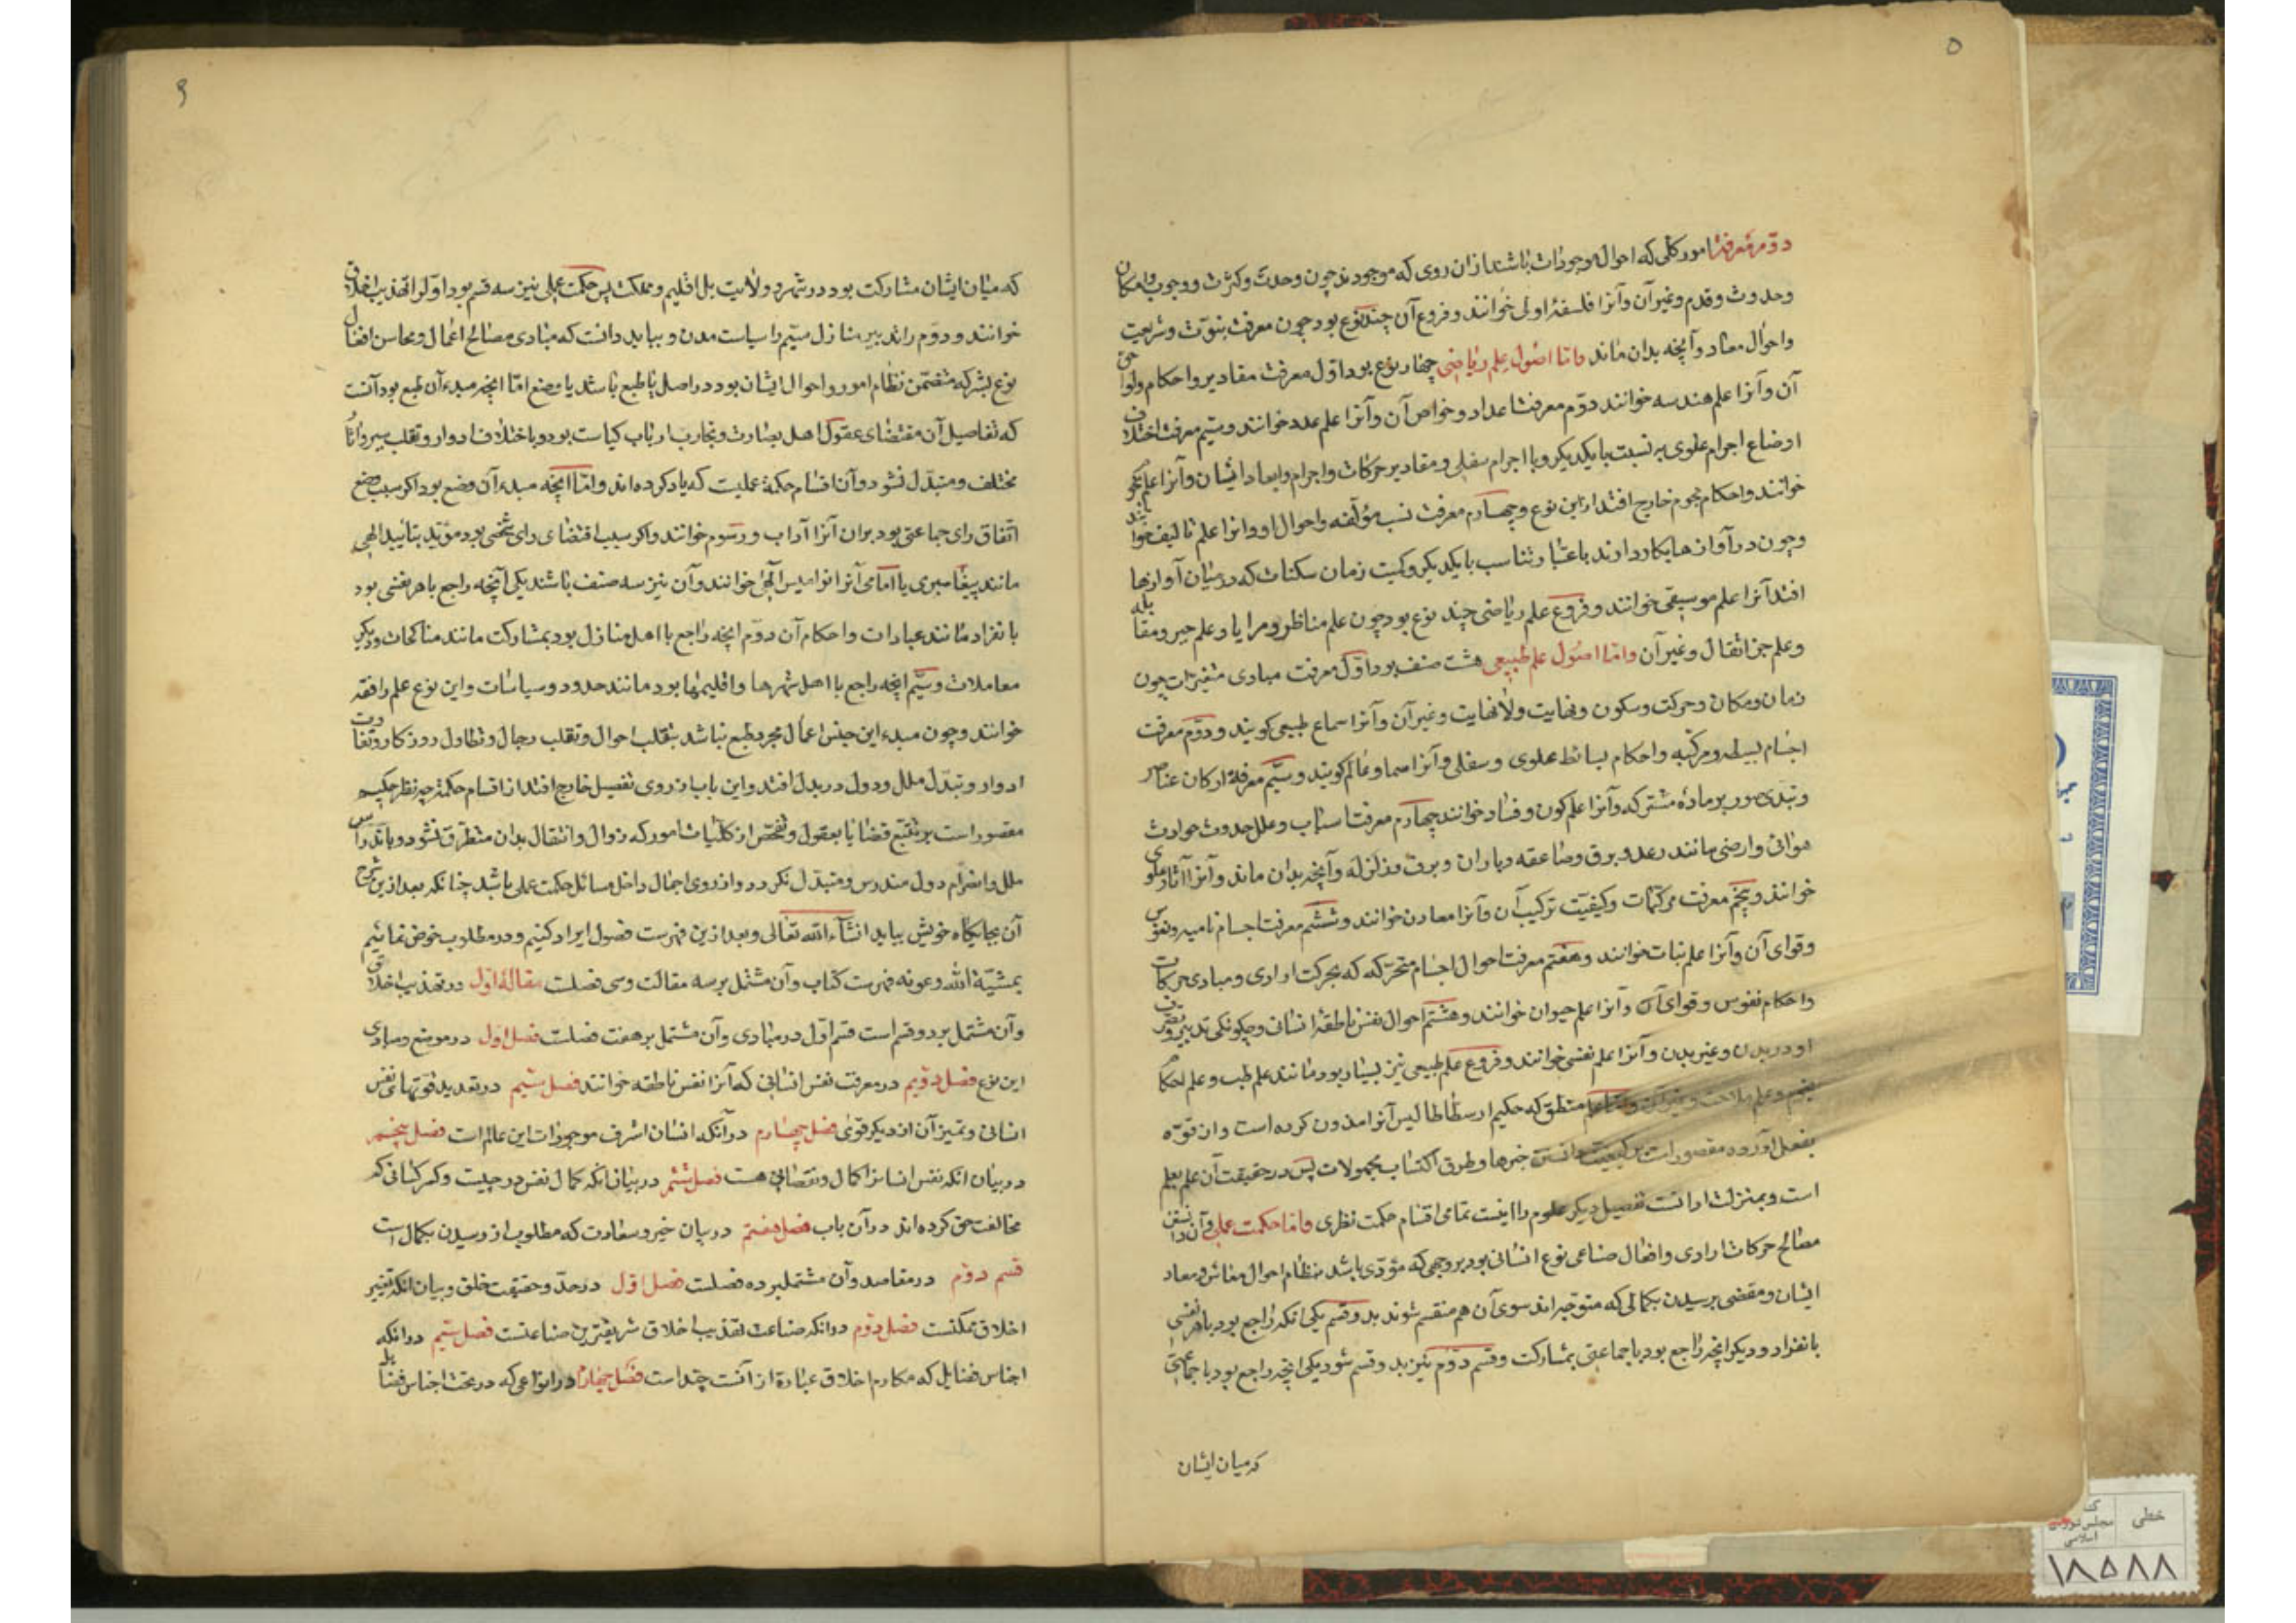 ۵
دوّم معرفت امور کلّی که احوال موجودات باشند ازان روی که موجودند چون وحدت وکثرت ووجوب وامکان
وحدوث وقدم وغیر آن وآنرا فلسفهٔ اولی خوانند وفروع آن چند نوع بود چون معرفت نبوّت وشریعت
واحوال معاد وآنچه بدان ماند وامّا اصول علم ریاضی چهار نوع بود اوّل معرفت مقادیر واحکام ولواحق
آن وآنرا علم هندسه خوانند دوّم معرفت اعداد وخواص آن وآنرا علم عدد خوانند وسیّم معرفت اختلاف
اوضاع اجرام علوی به نسبت بایکدیکر وبا اجرام سفلی ومقادیر حرکات واجرام وابعاد ایشان وآنرا علم نجوم
خوانند واحکام نجوم خارج افتد از این نوع وچهارم معرفت نسب مؤلّفه واحوال او وانرا علم تألیف خوانند
وچون در آوازها بکار دارند باعتبار تناسب بایکدیکر وکمیت زمان سکنات که در میان آوازها
افتد آنرا علم موسیقی خوانند وفروع علم ریاضی چند نوع بود چون علم مناظر ومرایا وعلم جبر ومقابله
وعلم جرّ اثقال وغیر آن وامّا اصول علم طبیعی هشت صنف بود اوّل معرفت مبادی متغیّرات چون
زمان ومکان وحرکت وسکون ونهایت ولانهایت وغیر آن وآنرا سماع طبیعی کویند ودوّم معرفت
اجسام بسیطه ومرکّبه واحکام بسائط علوی وسفلی وآنرا سما وعالم کویند وسیّم معرفة ارکان عناصر
وتبدّی صور بر مادّه مشترکه وآنرا علم کون وفساد خوانند چهارم معرفت اسباب وعلل حدوث حوادث
هوائی وارضی مانند رعد وبرق وصاعقه وباران وبرف وزلزله وآنچه بدان ماند وآنرا آثار علوی
خوانند وپنجم معرفت مرکّبات وکیفیّت ترکیب آن وآنرا معادن خوانند وششم معرفت اجسام نامیه ونفوس
وقوای آن وآنرا علم نبات خوانند وهفتم معرفت احوال اجسام متحرّکه که بحرکت ارادی ومبادی حرکات
واحکام نفوس وقوای آن وآنرا علم حیوان خوانند وهشتم احوال نفس ناطقهٔ انسانی وچکونکی تدبیر وتصرّف
او در بدن وغیر بدن وآنرا علم نفس خوانند وفروع علم طبیعی نیز بسیار بود مانند علم طب وعلم احکام
نجوم وعلم فلاحت وغیر آن وامّا علم منطق که حکیم ارسطاطالیس آنرا مدون کرده است وان قوّه
بفعل آورده مقصور است بر کیفیت دانستن چیزها وطرق اکتساب مجهولات پس در حقیقت آن علم بعلم
است وبمنزلت ادات تحصیل دیکر علوم را اینست تمامی اقسام حکمت نظری وامّا حکمت عملی وآن دانستن
مصالح حرکات ارادی وافعال صناعی نوع انسانی بود بر وجهی که مؤدّی باشد بنظام احوال معاش ومعاد
ایشان ومقضی برسیدن بکمالی که متوجّه اند سوی آن هم منقسم شوند بدو قسم یکی انکه راجع بود باهر نفسی
بانفراد ودیکر انچه راجع بود باجماعتی بمشارکت وقسم دوّم نیز بدو قسم شود یکی انچه راجع بود باجماعتی
که میان ایشان
۶
که میان ایشان مشارکت بود در شهر وولایت بل اقلیم ومملکت پس حکمت عملی نیز سه قسم بود اوّل را تهذیب اخلاق
خوانند ودوّم را تدبیر منازل سیّم را سیاست مدن وبباید دانست که مبادی مصالح اعمال ومحاسن افعال
نوع بشر که متضمّن نظام امور واحوال ایشان بود در اصل یا طبع باشد یا وضع امّا انچه مبدء آن طبع بود آنست
که تفاصیل آن مقتضای عقول اهل بصارت وتجارب ارباب کیاست بود وباختلاف ادوار وتقلب سیر وآثار
مختلف ومتبدّل نشود وآن اقسام حکمة عملیت که یاد کرده اند وامّا انچه مبدء آن وضع بود اکر سبب وضع
اتّفاق رای جماعتی بود بران آنرا آداب ورسوم خوانند واکر سبب اقتضای رای شخصی بود مؤیّد بتأیید الهی
مانند پیغامبری یا امامی آنرا نوامیس الهی خوانند وآن نیز سه صنف باشد یکی آنچه راجع باهر نفسی بود
بانفراد مانند عبادات واحکام آن دوّم انچه راجع با اهل منازل بود بمشارکت مانند مناکحات ودیکر
معاملات وسیّم انچه راجع با اهل شهرها واقلیمها بود مانند حدود وسیاسات واین نوع علم را فقه
خوانند وچون مبدء این جنس اعمال مجرد طبع نباشد بتقلب احوال وتقلب رجال وتطاول روزکار وتفاوت
ادوار وتبدّل ملل ودول در بدل افتد واین باب از روی تفصیل خارج افتد از اقسام حکمة چه نظر حکیم
مقصور است بر تتبّع قضایا بعقول وتفحّص از کلّیات امور که زوال وانتقال بدان متطرّق نشود وباندراس
ملل وانصرام دول مندرس ومتبدّل نکردد واز روی اجمال داخل مسائل حکمت عملی باشد چنانکه بعد ازین شرح
آن بجایکاه خویش بیاید انشاء الله تعالی وبعد ازین فهرست فصول ایراد کنیم ودر مطلوب خوض نمائیم
بمشیّة الله وعونه فهرست کتاب وآن مشتمل بر سه مقالت وسی فصلت مقالهٔ اوّل در تهذیب اخلاق
وآن مشتمل بر دو قسم است قسم اوّل در مبادی وآن مشتمل بر هفت فصلت فصل اول در موضع ومبادی
این نوع فصل دوّیم در معرفت نفس انسانی که آنرا نفس ناطقه خوانند فصل سیّم در تعدید قوّتهائی نفس
انسانی وتمیز آن از دیکر قوی فصل چهارم در آنکه انسان اشرف موجودات این عالم است فصل پنجم
در بیان انکه نفس انسانرا کمال ونقصانی هست فصل ششم در بیان انکه کمال نفس در چیست وکسر کسانی که
مخالفت حق کرده اند در آن باب فصل هفتم در بیان خیر وسعادت که مطلوب از رسیدن بکمال است
قسم دوّم در مقاصد وآن مشتملبر ده فصلت فصل اوّل در حدّ وحقیقت خلق وبیان انکه تغییر
اخلاق ممکنست فصل دوّم در انکه صناعت تهذیب اخلاق شریفترین صناعتست فصل سیّم در انکه
اجناس فضایل که مکارم اخلاق عبارة از آنست چند است فصل چهارم در انواعی که در تحت اجناس فضایل
خطی
مجلس شورای
اسلامی
۱۸۵۸۸